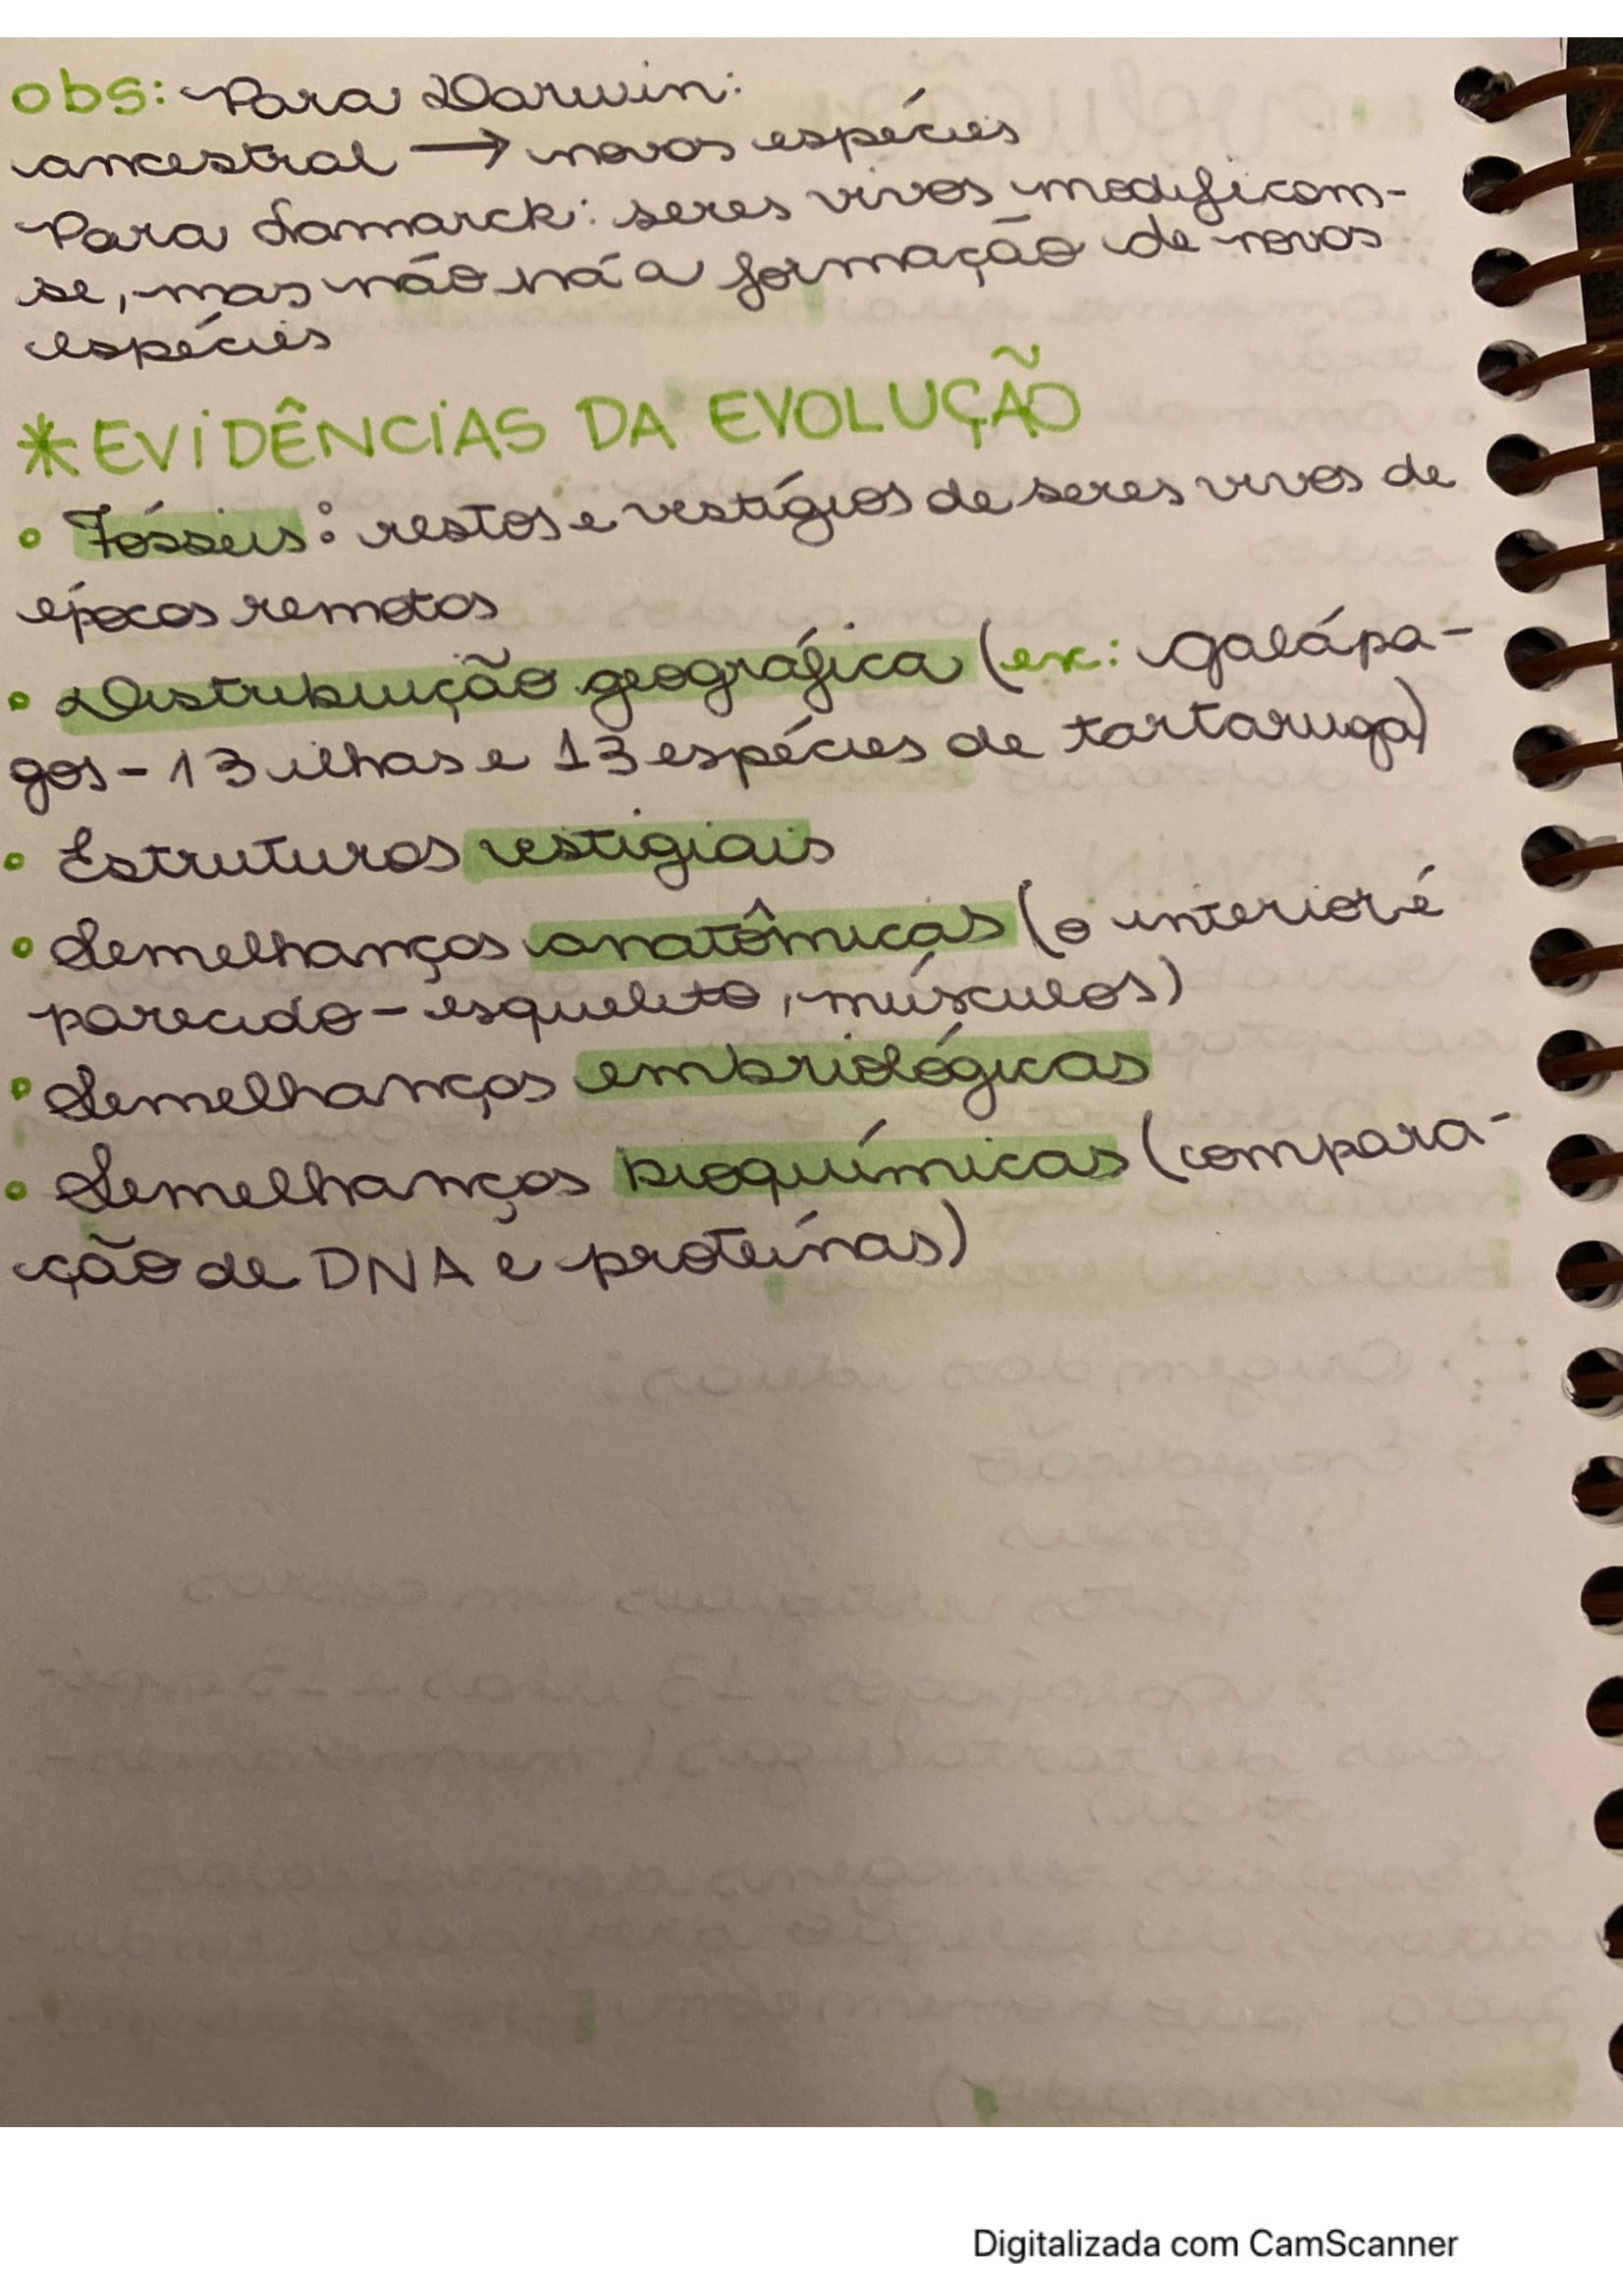 obs: Para Darwin:
ancestral → novas espécies
Para Lamarck: seres vivos modificam-
se, mas não há a formação de novas
espécies
*EVIDÊNCIAS DA EVOLUÇÃO
• Fósseis: restos e vestígios de seres vivos de
épocas remotas
• Distribuição geográfica (ex: Galápa-
gos - 13 ilhas e 13 espécies de tartaruga)
• Estruturas vestigiais
• Semelhanças anatômicas (o interior é
parecido - esqueleto, músculos)
• Semelhanças embriológicas
• Semelhanças bioquímicas (compara-
ção de DNA e proteínas)
Digitalizada com CamScanner